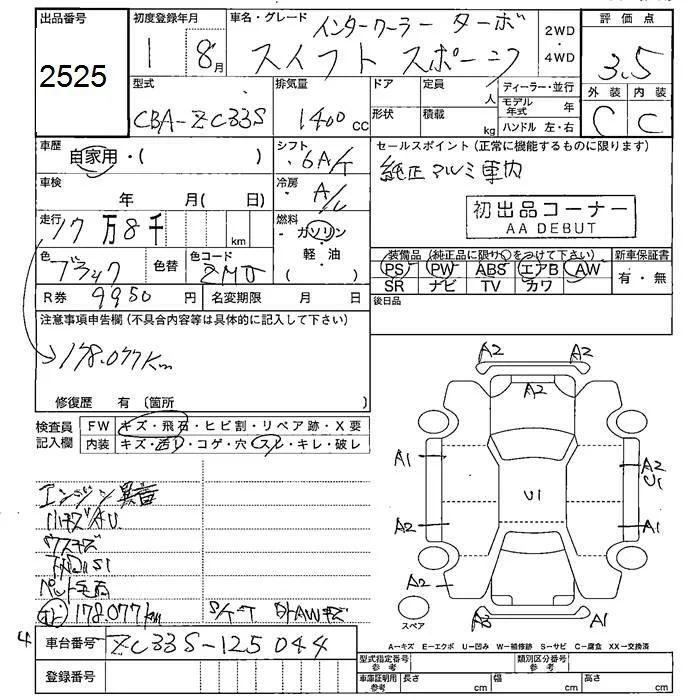 出品番号 初度登録年月 車名・グレード インタークーラー ターボ 2WD・4WD 評価点
2525 1 8月 スイフト スポーツ 3.5
型式 排気量 ドア 定員 人 ディーラー・並行 外装 内装
CBA-ZC33S 1400 cc 形状 積載 kg モデル年式 年 C C
ハンドル 左・右
車歴 自家用・( ) シフト ・6A/T セールスポイント(正常に機能するものに限ります)
車検 年 月( 日) 冷房 A/C 純正アルミ車内
走行 17万8千 km 燃料 ガソリン 軽・油 ( ) 初出品コーナー
AA DEBUT
色 ブラック 色替 色コード ZMJ 装備品(純正品に限り○をつけて下さい) 新車保証書
PS PW ABS エアB AW 有・無
SR ナビ TV カワ
R券 9950 円 名変期限 月 日 後日品
注意事項申告欄(不具合内容等は具体的に記入して下さい)
178.077Km
修復歴 有(箇所
検査員記入欄 FW キズ・飛石・ヒビ割・リペア跡・X要
内装 キズ・汚レ・コゲ・穴・スレ・キレ・破レ
A2 A2
A2
A1 A2
U1
U1
A2 A1
A2
A3 A1
スペア
エンジン異音
ハナズAU
ウスキズ
178.077km
4 車台番号 ZC33S-125044
登録番号
A－キズ E－エクボ U－凹み W－補修跡 S－サビ C－腐食 XX－交換済
型式指定番号 参考 類別区分番号 参考
車庫証明用 参考 長さ cm 幅 cm 高さ cm